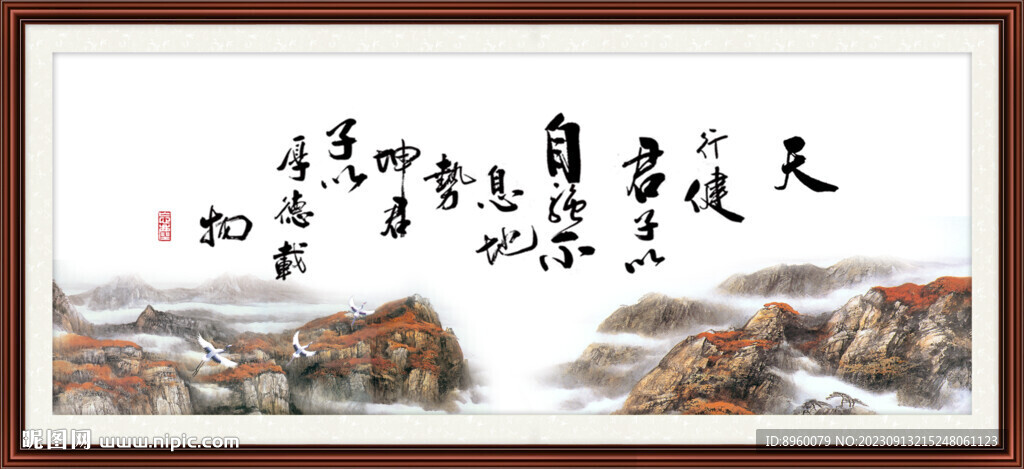 天
行健
君子以
自強不
息地
勢
坤君
子以
厚德載
物
昵图网 www.nipic.com
ID:8960079 NO:20230913215248061123